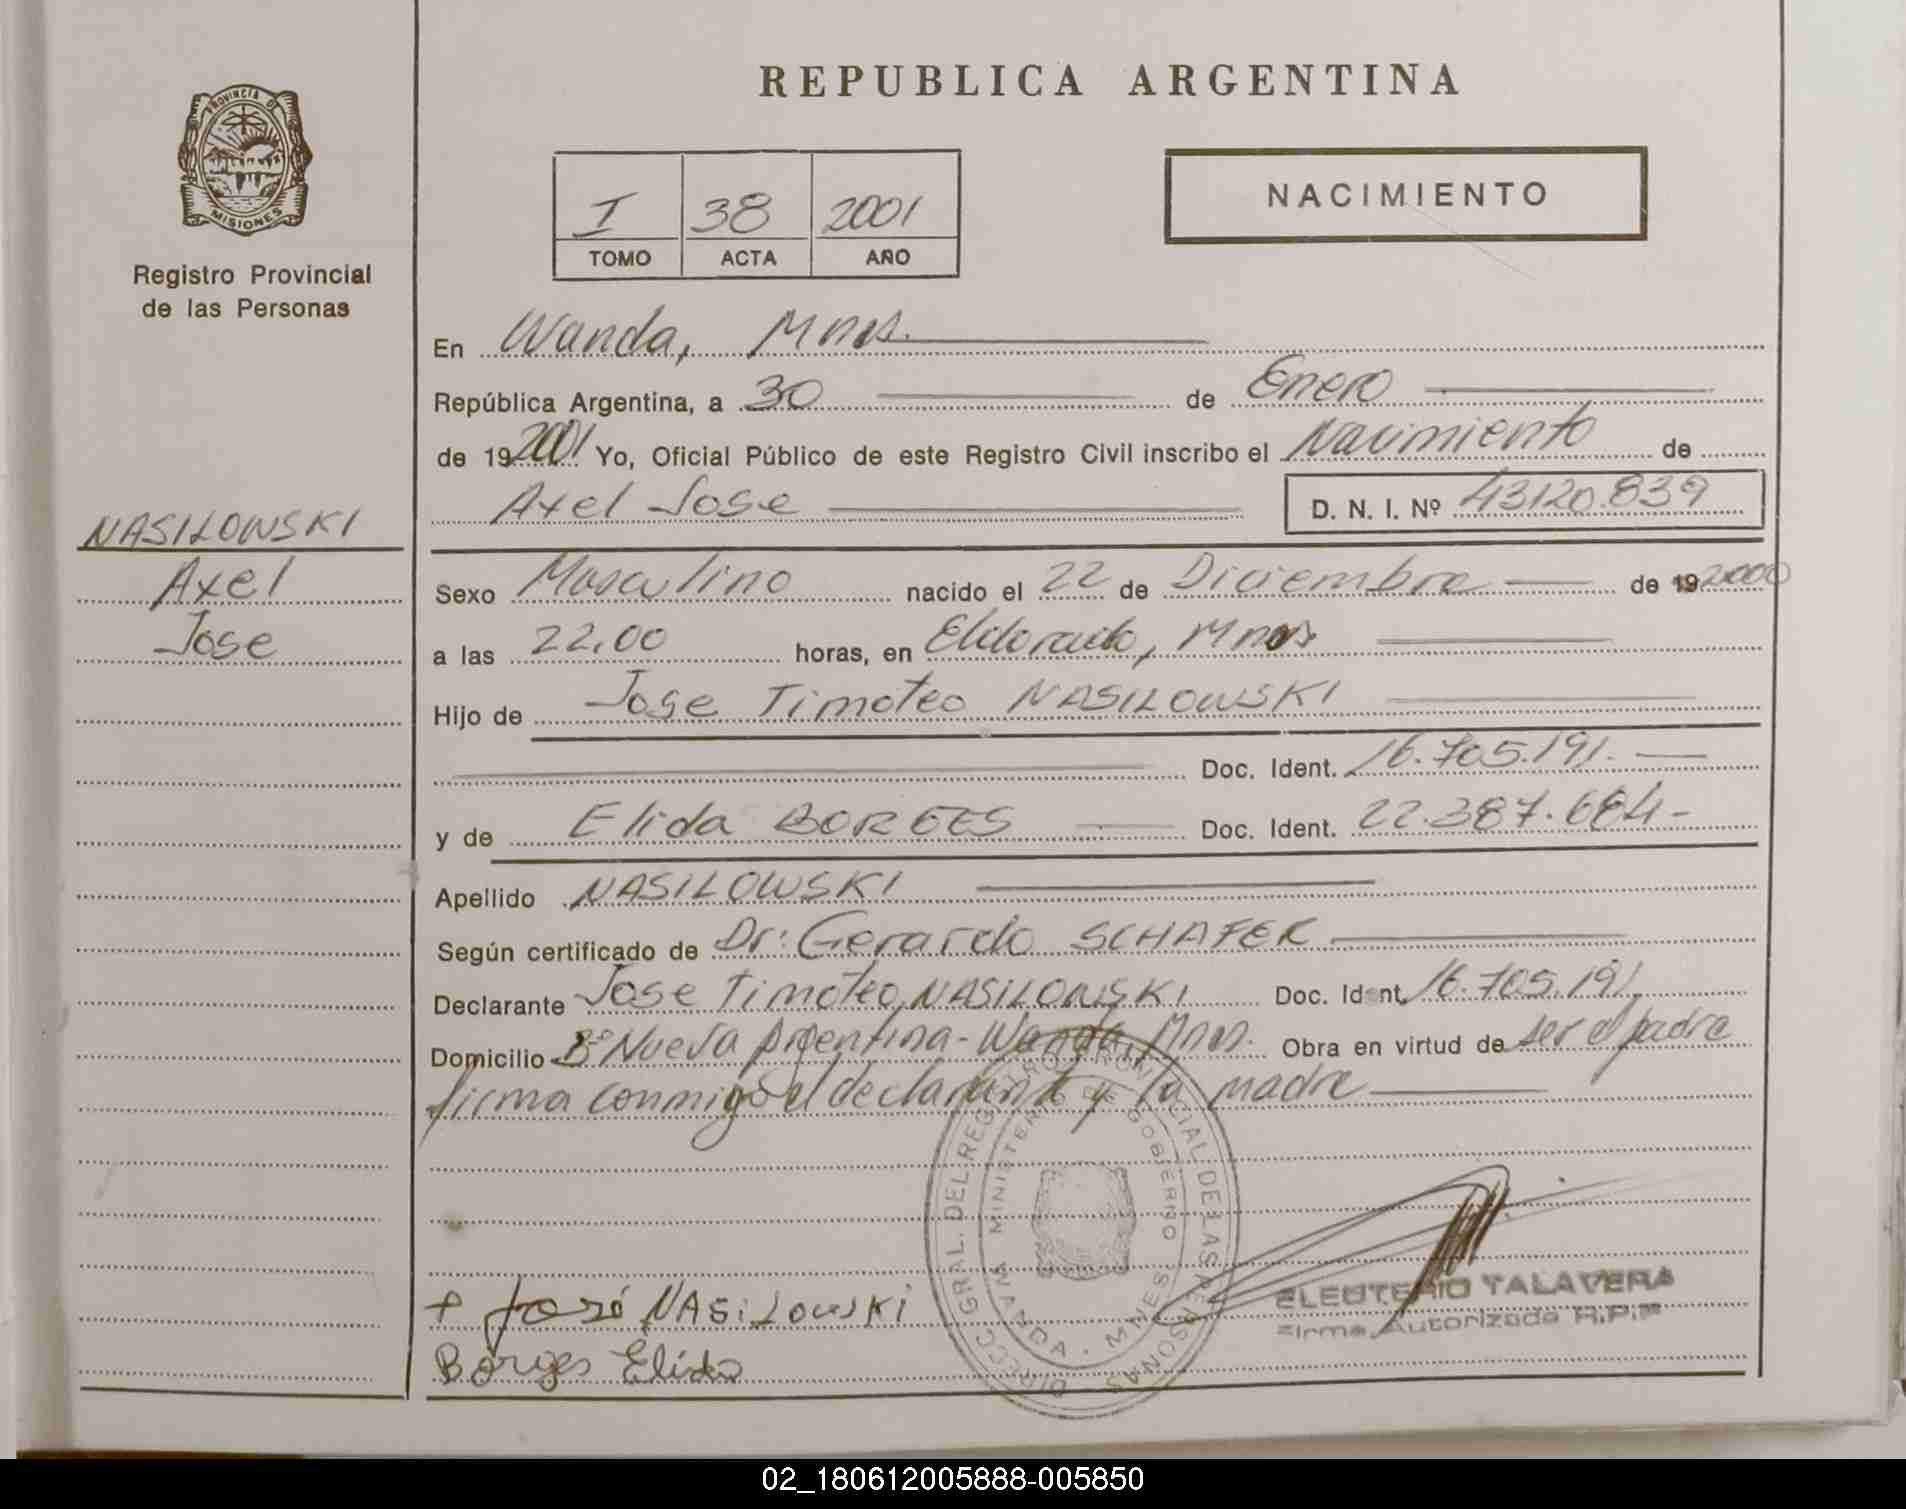 REPUBLICA ARGENTINA
PROVINCIA DE
MISIONES
Registro Provincial
de las Personas
I 38 2001
TOMO ACTA AÑO
NACIMIENTO
En Wanda, Mnes.
República Argentina, a 30 de Enero
de 19 2001 Yo, Oficial Público de este Registro Civil inscribo el Nacimiento de
Axel Jose D. N. I. Nº 43120.839
NASILOWSKI
Axel
Jose
Sexo Masculino nacido el 22 de Diciembre de 19 2000
a las 22,00 horas, en Eldorado, Mnes
Hijo de Jose Timoteo NASILOWSKI
Doc. Ident. 16.705.191.
y de Elida BORGES Doc. Ident. 22.387.684-
Apellido NASILOWSKI
Según certificado de Dr: Gerardo SCHAFER
Declarante Jose Timoteo NASILOWSKI Doc. Ident. 16.705.191
Domicilio Bº Nueva Argentina - Wanda, Mnes. Obra en virtud de ser el padre
firma conmigo el declarante y la madre
DIRECC. GRAL. DEL REGISTRO PROVINCIAL DE LAS PERSONAS
MINISTERIO DE GOBIERNO
WANDA - MNES
+ José NASILOWSKI
Borges Elida
ELEUTERIO TALAVERA
Firma Autorizada R.P.P
02_180612005888-005850